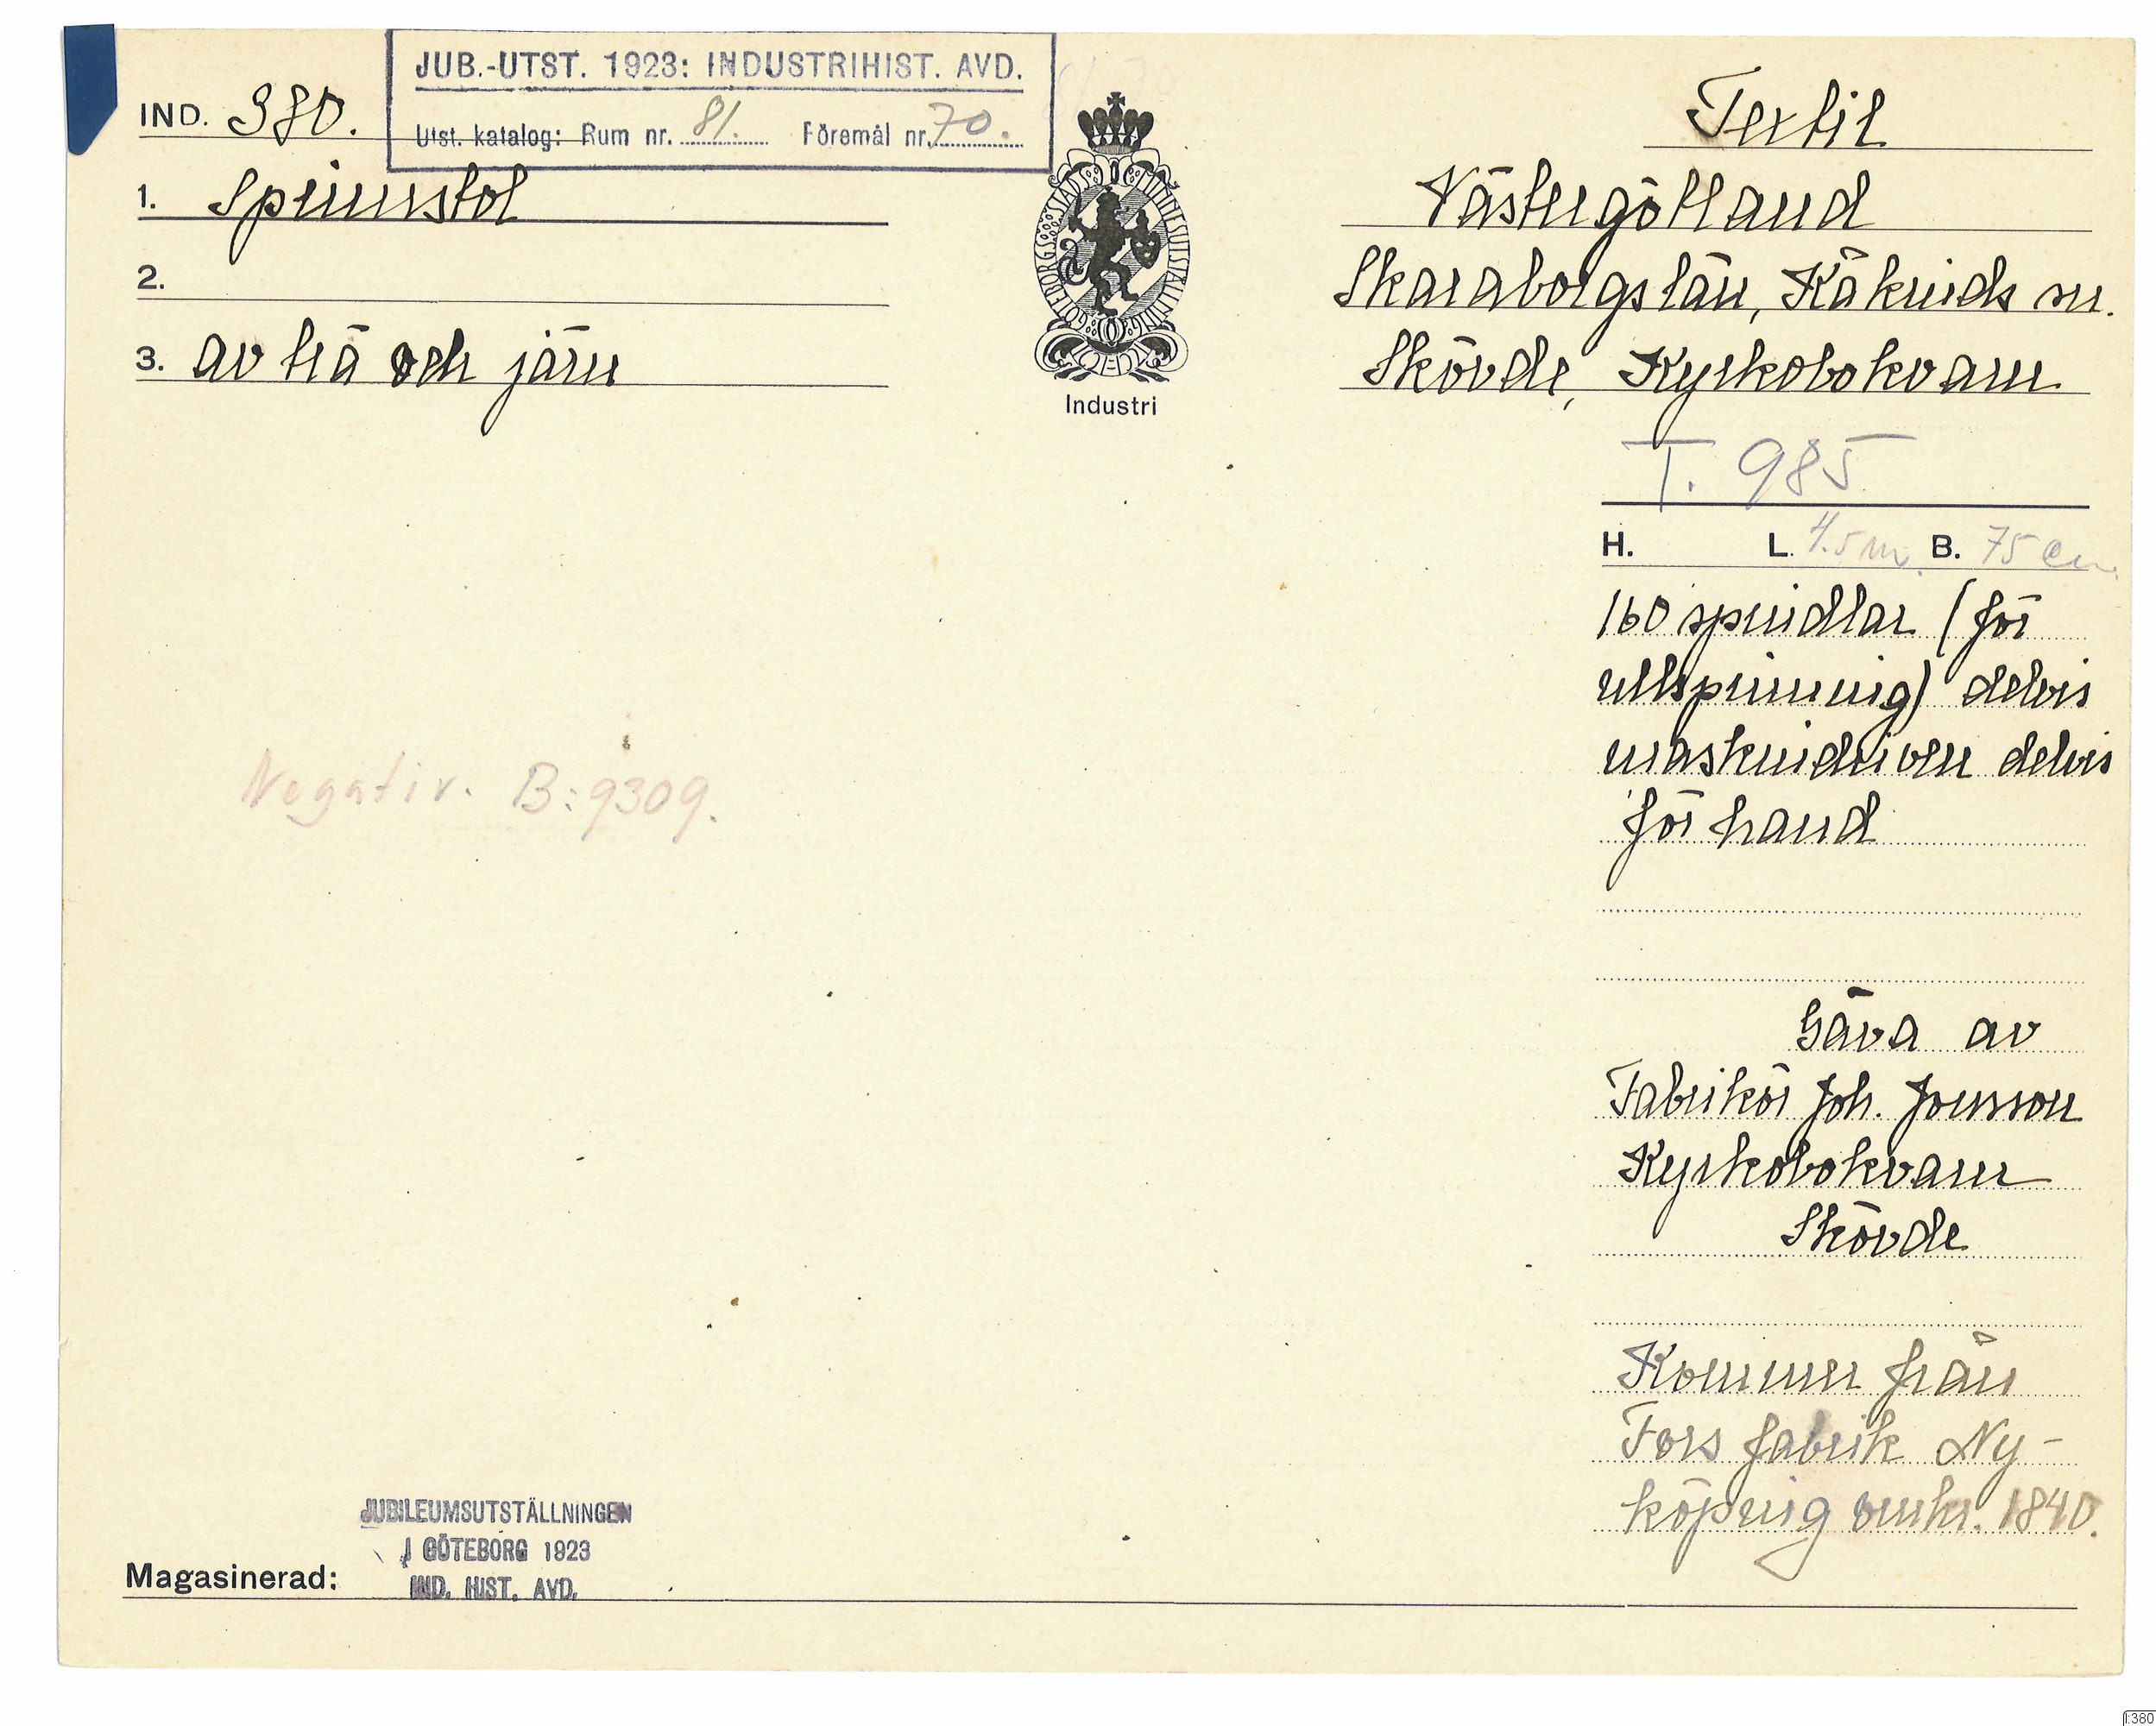 JUB.-UTST. 1923: INDUSTRIHIST. AVD.
Utst. katalog: Rum nr. 81. Föremål nr. 70.
IND. 380.
1. Spinnstol
2.
3. av trä och järn
Industri
Textil
Västergötland
Skaraborgs län, Kåkinds sn.
Skövde, Kyrkobokvarn
T. 985
H. L. 4.5 m. B. 75 cm.
160 spindlar (för
ullspinning) delvis
maskindriven delvis
för hand
Negativ. B:9309.
Gåva av
Fabrikör Joh. Jonsson
Kyrkobokvarn
Skövde
Kommer från
Fors fabrik Ny-
köping omkr. 1840.
JUBILEUMSUTSTÄLLNINGEN
I GÖTEBORG 1923
IND. HIST. AVD.
Magasinerad:
I:380